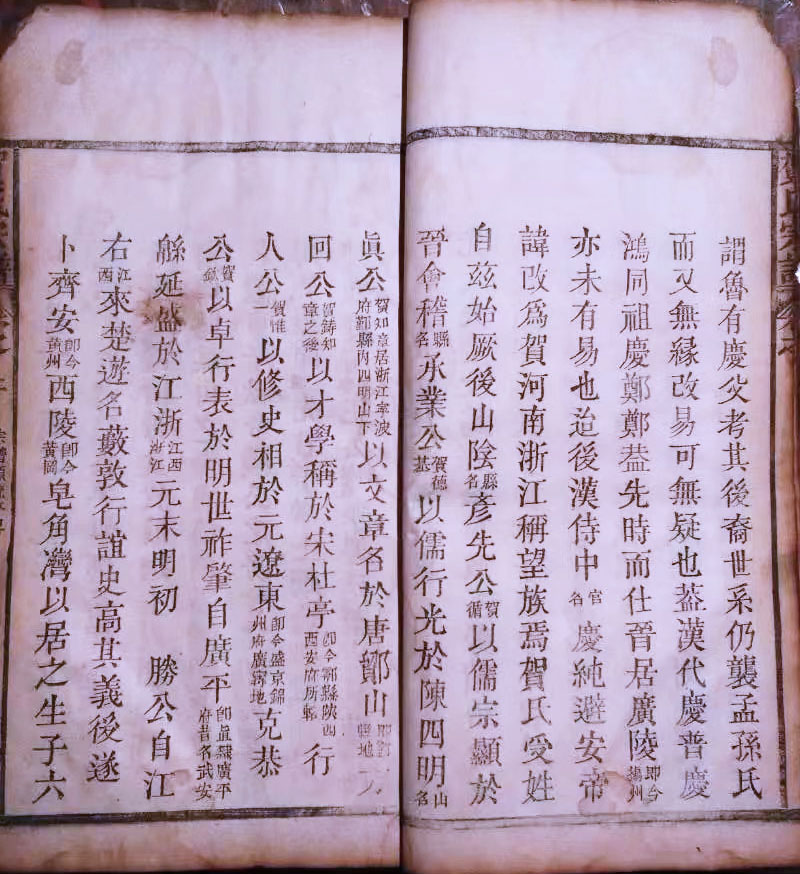 謂魯有慶父考其後裔世系仍襲孟孫氏
而又無緣改易可無疑也葢漢代慶普慶
鴻同祖慶鄭鄭葢先時而仕晉居廣陵即今揚州
亦未有易也迨後漢侍中官名慶純避安帝
諱改爲賀河南浙江稱望族焉賀氏受姓
自茲始厥後山陰縣名彥先公賀循以儒宗顯於
晉會稽縣名承業公賀德基以儒行光於陳四明山名
眞公賀知章居浙江寧波府鄞縣內四明山下以文章名於唐鄮山
回公賀鑄知章之後以才學稱於宋杜亭即今鄠縣陝西西安府所轄行
人公賀惟一以修史相於元遼東即今盛京錦州府廣寧地克恭
公賀欽以卓行表於明世祚肇自廣平即直隸廣平府昔名武安
緜延盛於江浙江西浙江元末明初 勝公自江
右江西來楚遊名藪敦行誼史高其義後遂
卜齊安即今黃州西陵即今黃岡皂角灣以居之生子六